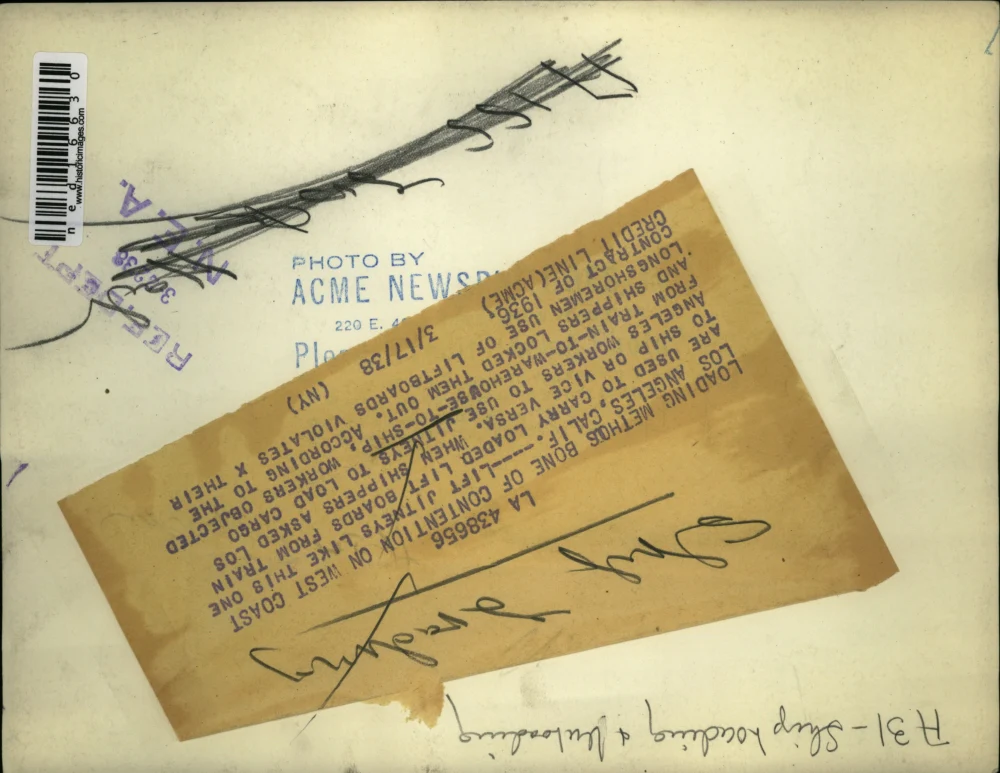 www.historicimages.com
ned16630
N.E.A.
PHOTO BY
ACME NEWSP
220 E. 4
Ple
LA 438656
LOADING METHODS BONE OF CONTENTION ON WEST COAST
LOS ANGELES, CALIF.---LIFT JITNEYS LIKE THIS ONE
ARE USED TO CARRY LOADED LIFT BOARDS FROM TRAIN
TO SHIP OR VICE VERSA. WHEN SHIPPERS ASKED LOS
ANGELES WORKERS TO USE JITNEYS TO LOAD CARGO
FROM TRAIN-TO-WAREHOUSE-TO-SHIP, WORKERS OBJECTED
AND SHIPPERS LOCKED THEM OUT. ACCORDING TO THE
LONGSHOREMEN USE OF LIFTBOARDS VIOLATES THEIR
CONTRACT OF 1936, X
CREDIT LINE(ACME) 3/17/38 (NY)
Ship Loading
H31 - Ship Loading & Unloading